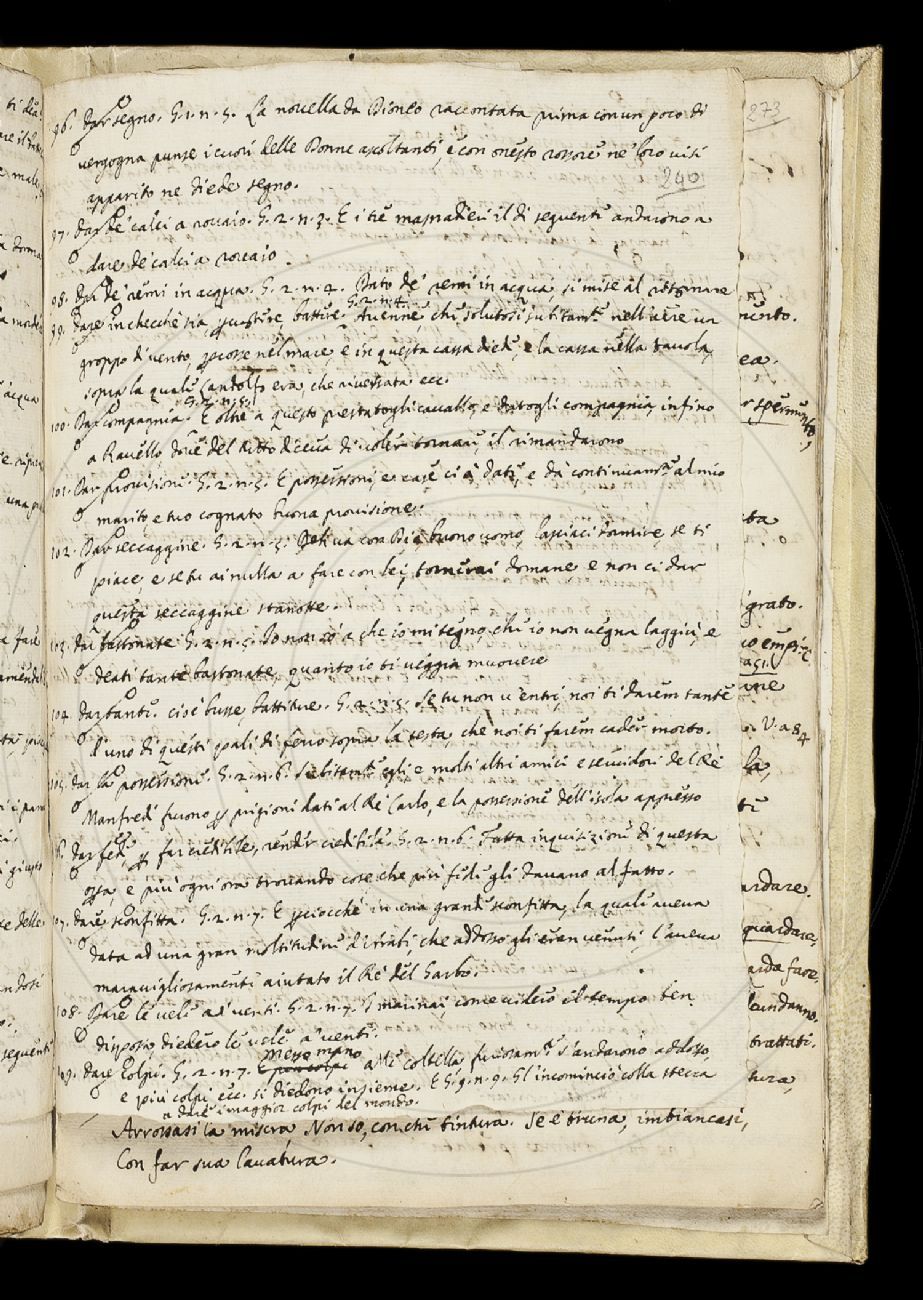 273
96. Dar segno. G. 1. n. 5. La novella da Dioneo raccontata prima con un poco di
vergogna punse i cuori delle Donne ascoltanti, e con onesto rossore ne' loro visi
apparito ne diede segno.
240
97. Dar de' calci a rovaio. G. 2. n. 2. E i tre masnadieri il dì seguente andarono a
dare de' calci a rovaio.
98. Dar de' remi in acqua. G. 2. n. 2. Dato de' remi in acqua, si mise al ritornare
99. Dare in checchè sia, percuotere, battere. G. 2. n. 4. Avenne, che solutosi subitamte nell'aere un
groppo di vento, percosse nel mare, e in questa cassa diede, e la cassa nella tavola,
sopra la quale Landolfo era, che riversata ecc.
100. Dar compagnia. G. 2. n. 4. E oltre a questo prestatogli cavallo, e datogli compagnia, infino
a Ravello, dove del tutto diceva di voler tornare, il rimandarono
101. Dar provisione. G. 2. n. 5. E possessioni, e case ci à date, e dà continuamte al mio
marito, e tuo cognato buona provisione.
102. Dar seccaggine. G. 2. n. 5. Deh va con Dio buono uomo, lasciaci dormire, se ti
piace, e se tu ai nulla a fare con lei, tornerai domane e non ci dar
questa seccaggine stanotte.
103. Dar bastonate G. 2. n. 5. Io non so a che io mi tegno, che io non vegna laggiù, e
deati tante bastonate, quanto io ti veggia muovere
104. Dar tante. cioè busse, battiture. G. 2. n. 5. Se tu non v'entri, noi ti darem tante
l'uno di questi pali di ferro sopra la testa, che noi ti farem cader morto.
105. dar la possessione. G. 2. n. 6. Subitamte egli e molti altri amici e servidori del Re
Manfredi furono per prigioni dati al Re Carlo, e la possessione dell'isola appresso
Dar fede, per far credibile, render credibile. G. 2. n. 6. Fatta inquisizione di questa
opera, e più ogni ora trovando cose, che più fede gli davano al fatto.
107. Dare sconfitta. G. 2. n. 7. E perciocchè in una grande sconfitta, la quale aveva
data ad una gran moltitudine d'Arabi, che addosso gli eren venuti, l'aveva
maravigliosamente aiutato il Re del Garbo.
108. Dare le vele a' venti. G. 2. n. 7. I marinai, come videro il tempo ben
disposto, diedero le vele a' venti.
109. Dare Colpi. G. 2. n. 7. E messo mano alle coltella, furiosamte s'andarono addosso,
e più colpi ecc. si diedono insieme. E G. 9. n. 9. Gl'incominciò colla stecca
a dare i maggior colpi del mondo.
Arrossasi la misera Non so, con che tintura. Se è bruna, imbiancasi,
Con far sua lavatura.